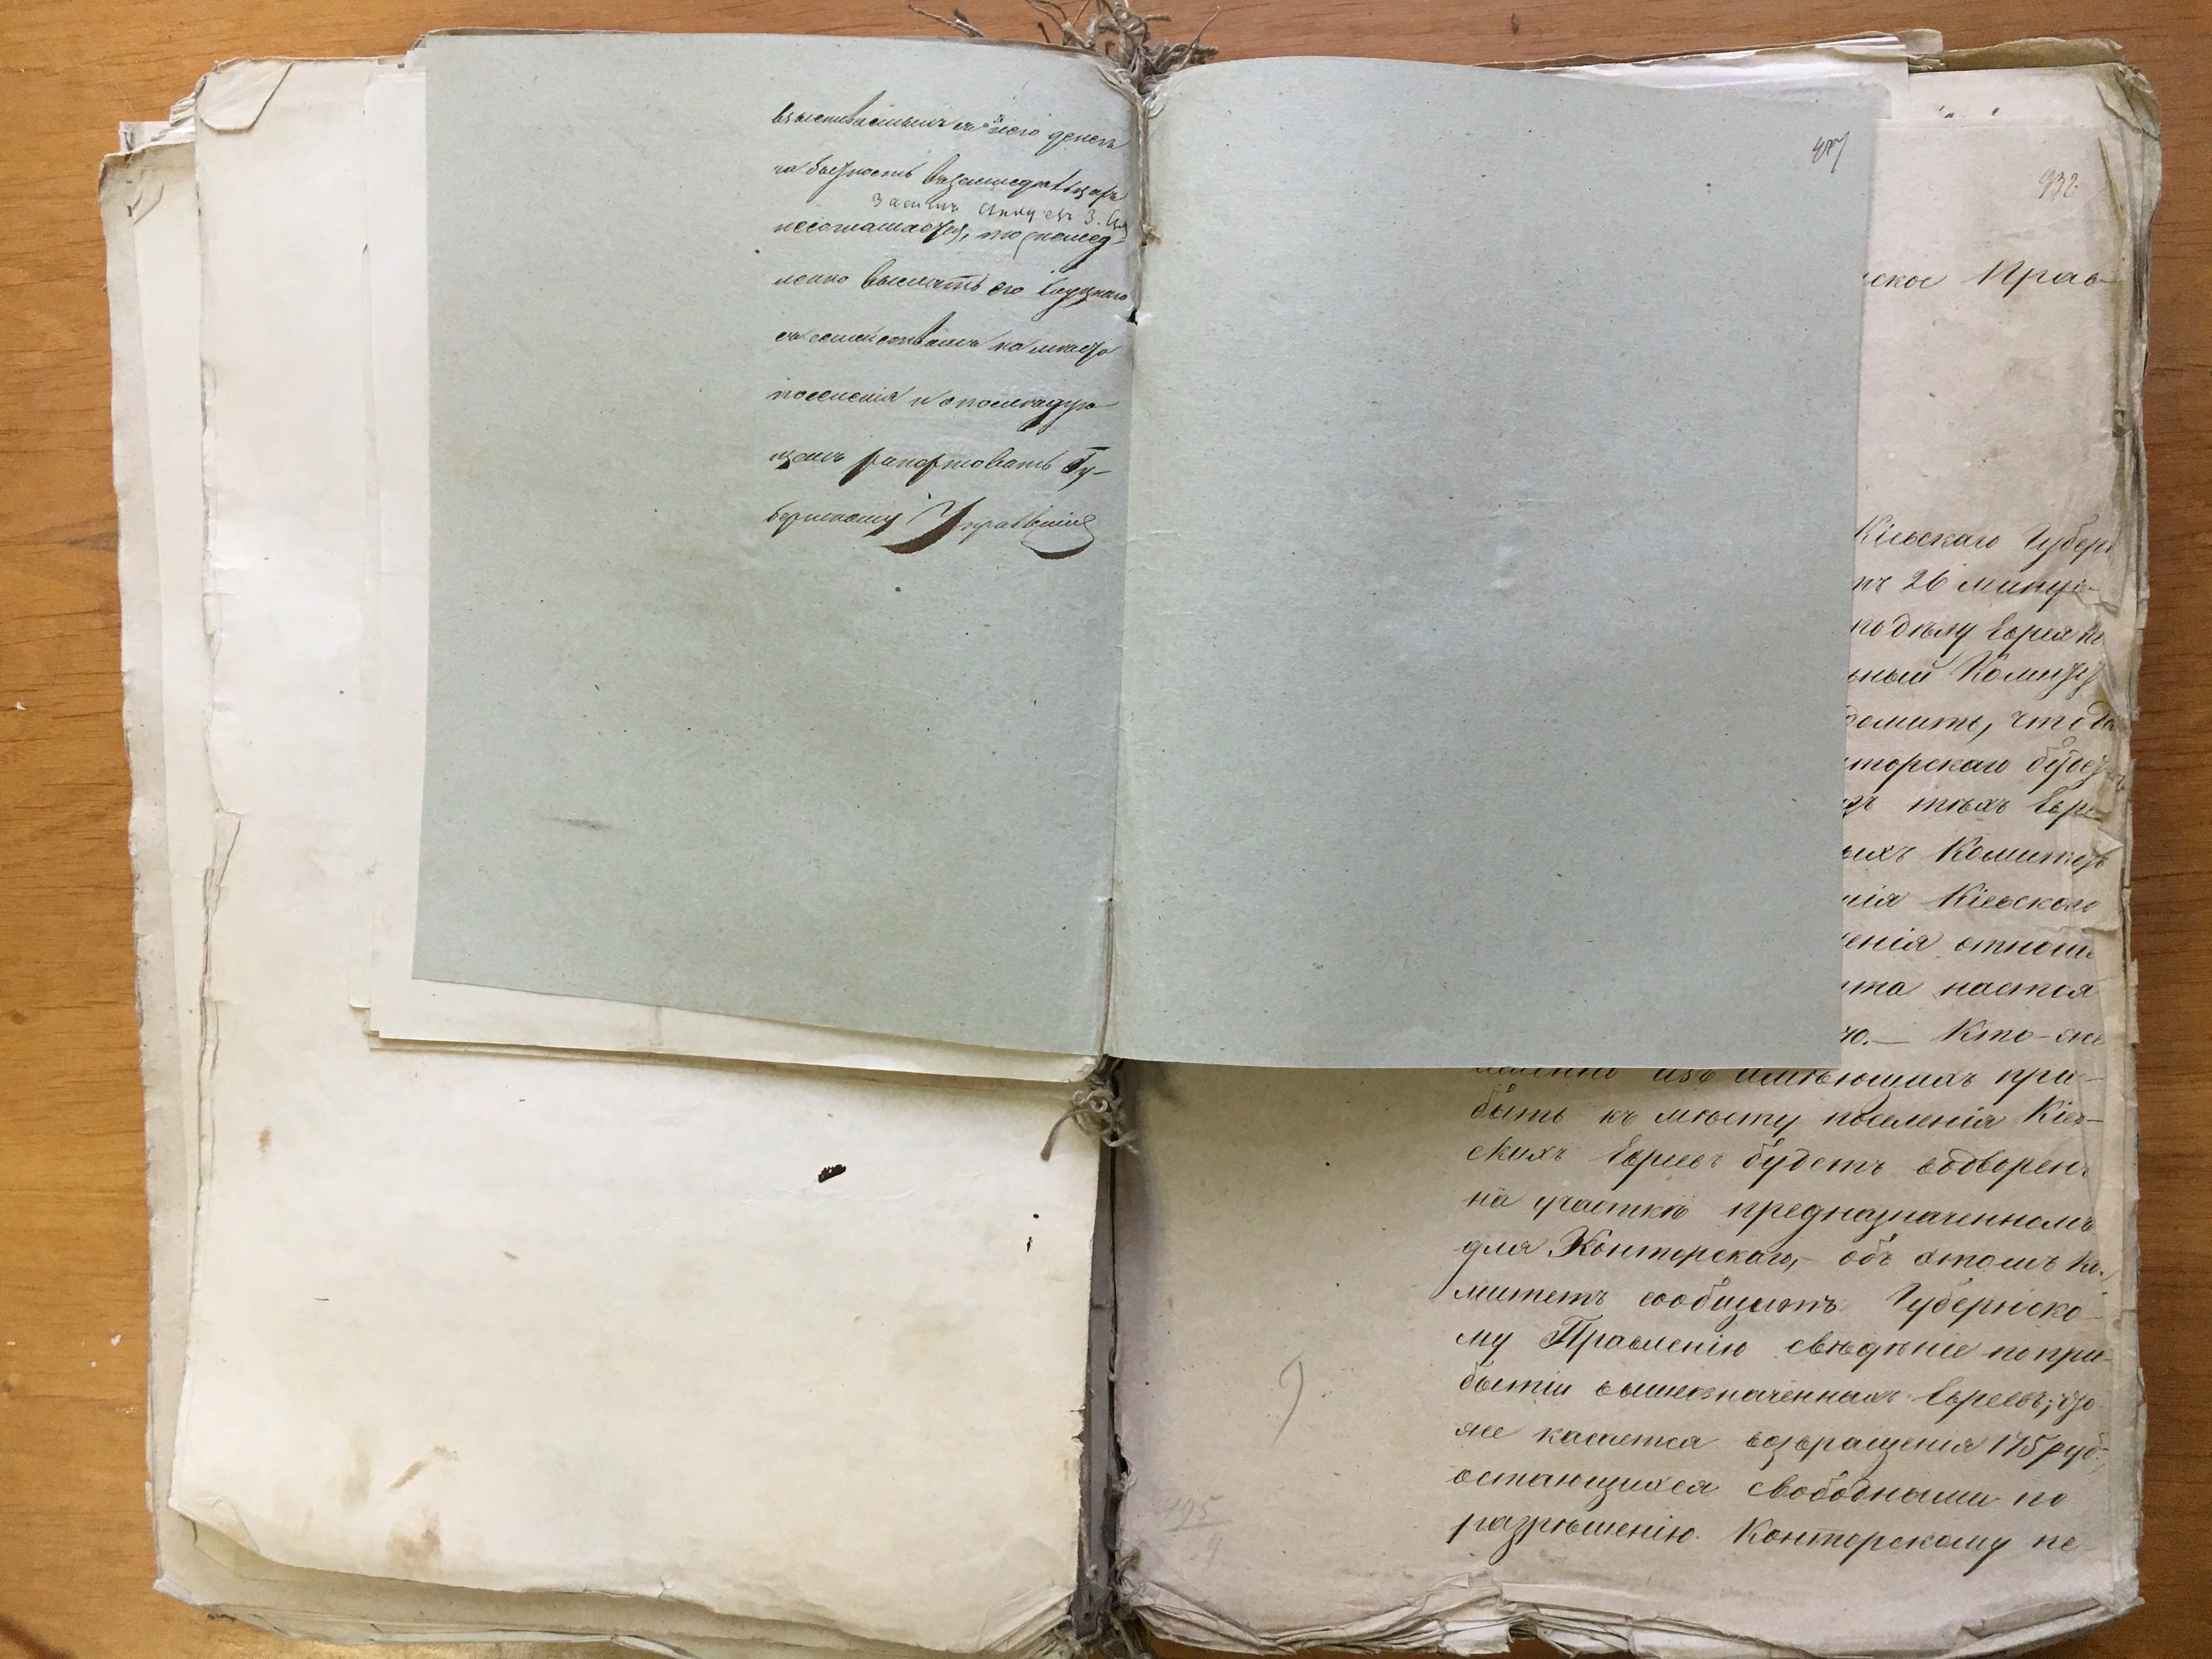 взыскиваемыхъ съ него денегъ
на бытность
несоглашается, то немед-
ленно выслать его
съ семействомъ на место
поселения и о последую
щемъ рапортовать Гу-
бернскому Правленію
932
ское Прав-
Кіевскаго Губерн
тъ 26 мину-
по делу Еврея Ко
ьный Комите
домить, что
нторскаго будетъ
тѣхъ Евре
ыхъ Комитетъ
нія Кіевскаго
енія относи
ита настоя
ю. — Кто-же
именно изъ имѣющихъ при-
быть къ мѣсту поселенія Кіев-
скихъ Евреевъ будетъ водворенъ
на участкѣ предназначенномъ
для Конторскаго, - объ этомъ Ко-
митетъ сообщитъ Губернско-
му Правленію свѣдѣніе по при-
бытіи вышеозначенныхъ Евреевъ; что
же касается возвращенія 175 руб.,
остающихся свободными по
разрѣшенію Конторскому не-
9.
195
9